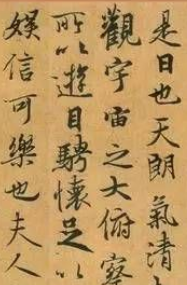 是日也天朗氣清
觀宇宙之大俯察
所以遊目騁懷足以
娛信可樂也夫人